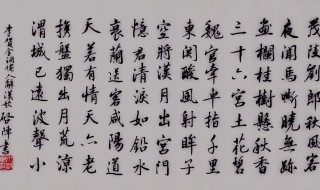 茂陵劉郎秋風客
夜聞馬嘶曉無跡
畫欄桂樹懸秋香
三十六宮土花碧
魏官牽車指千里
東關酸風射眸子
空將漢月出宮門
憶君清淚如鉛水
衰蘭送客咸陽道
天若有情天亦老
攜盤獨出月荒涼
渭城已遠波聲小
李賀金銅僊人辭漢歌
陣書